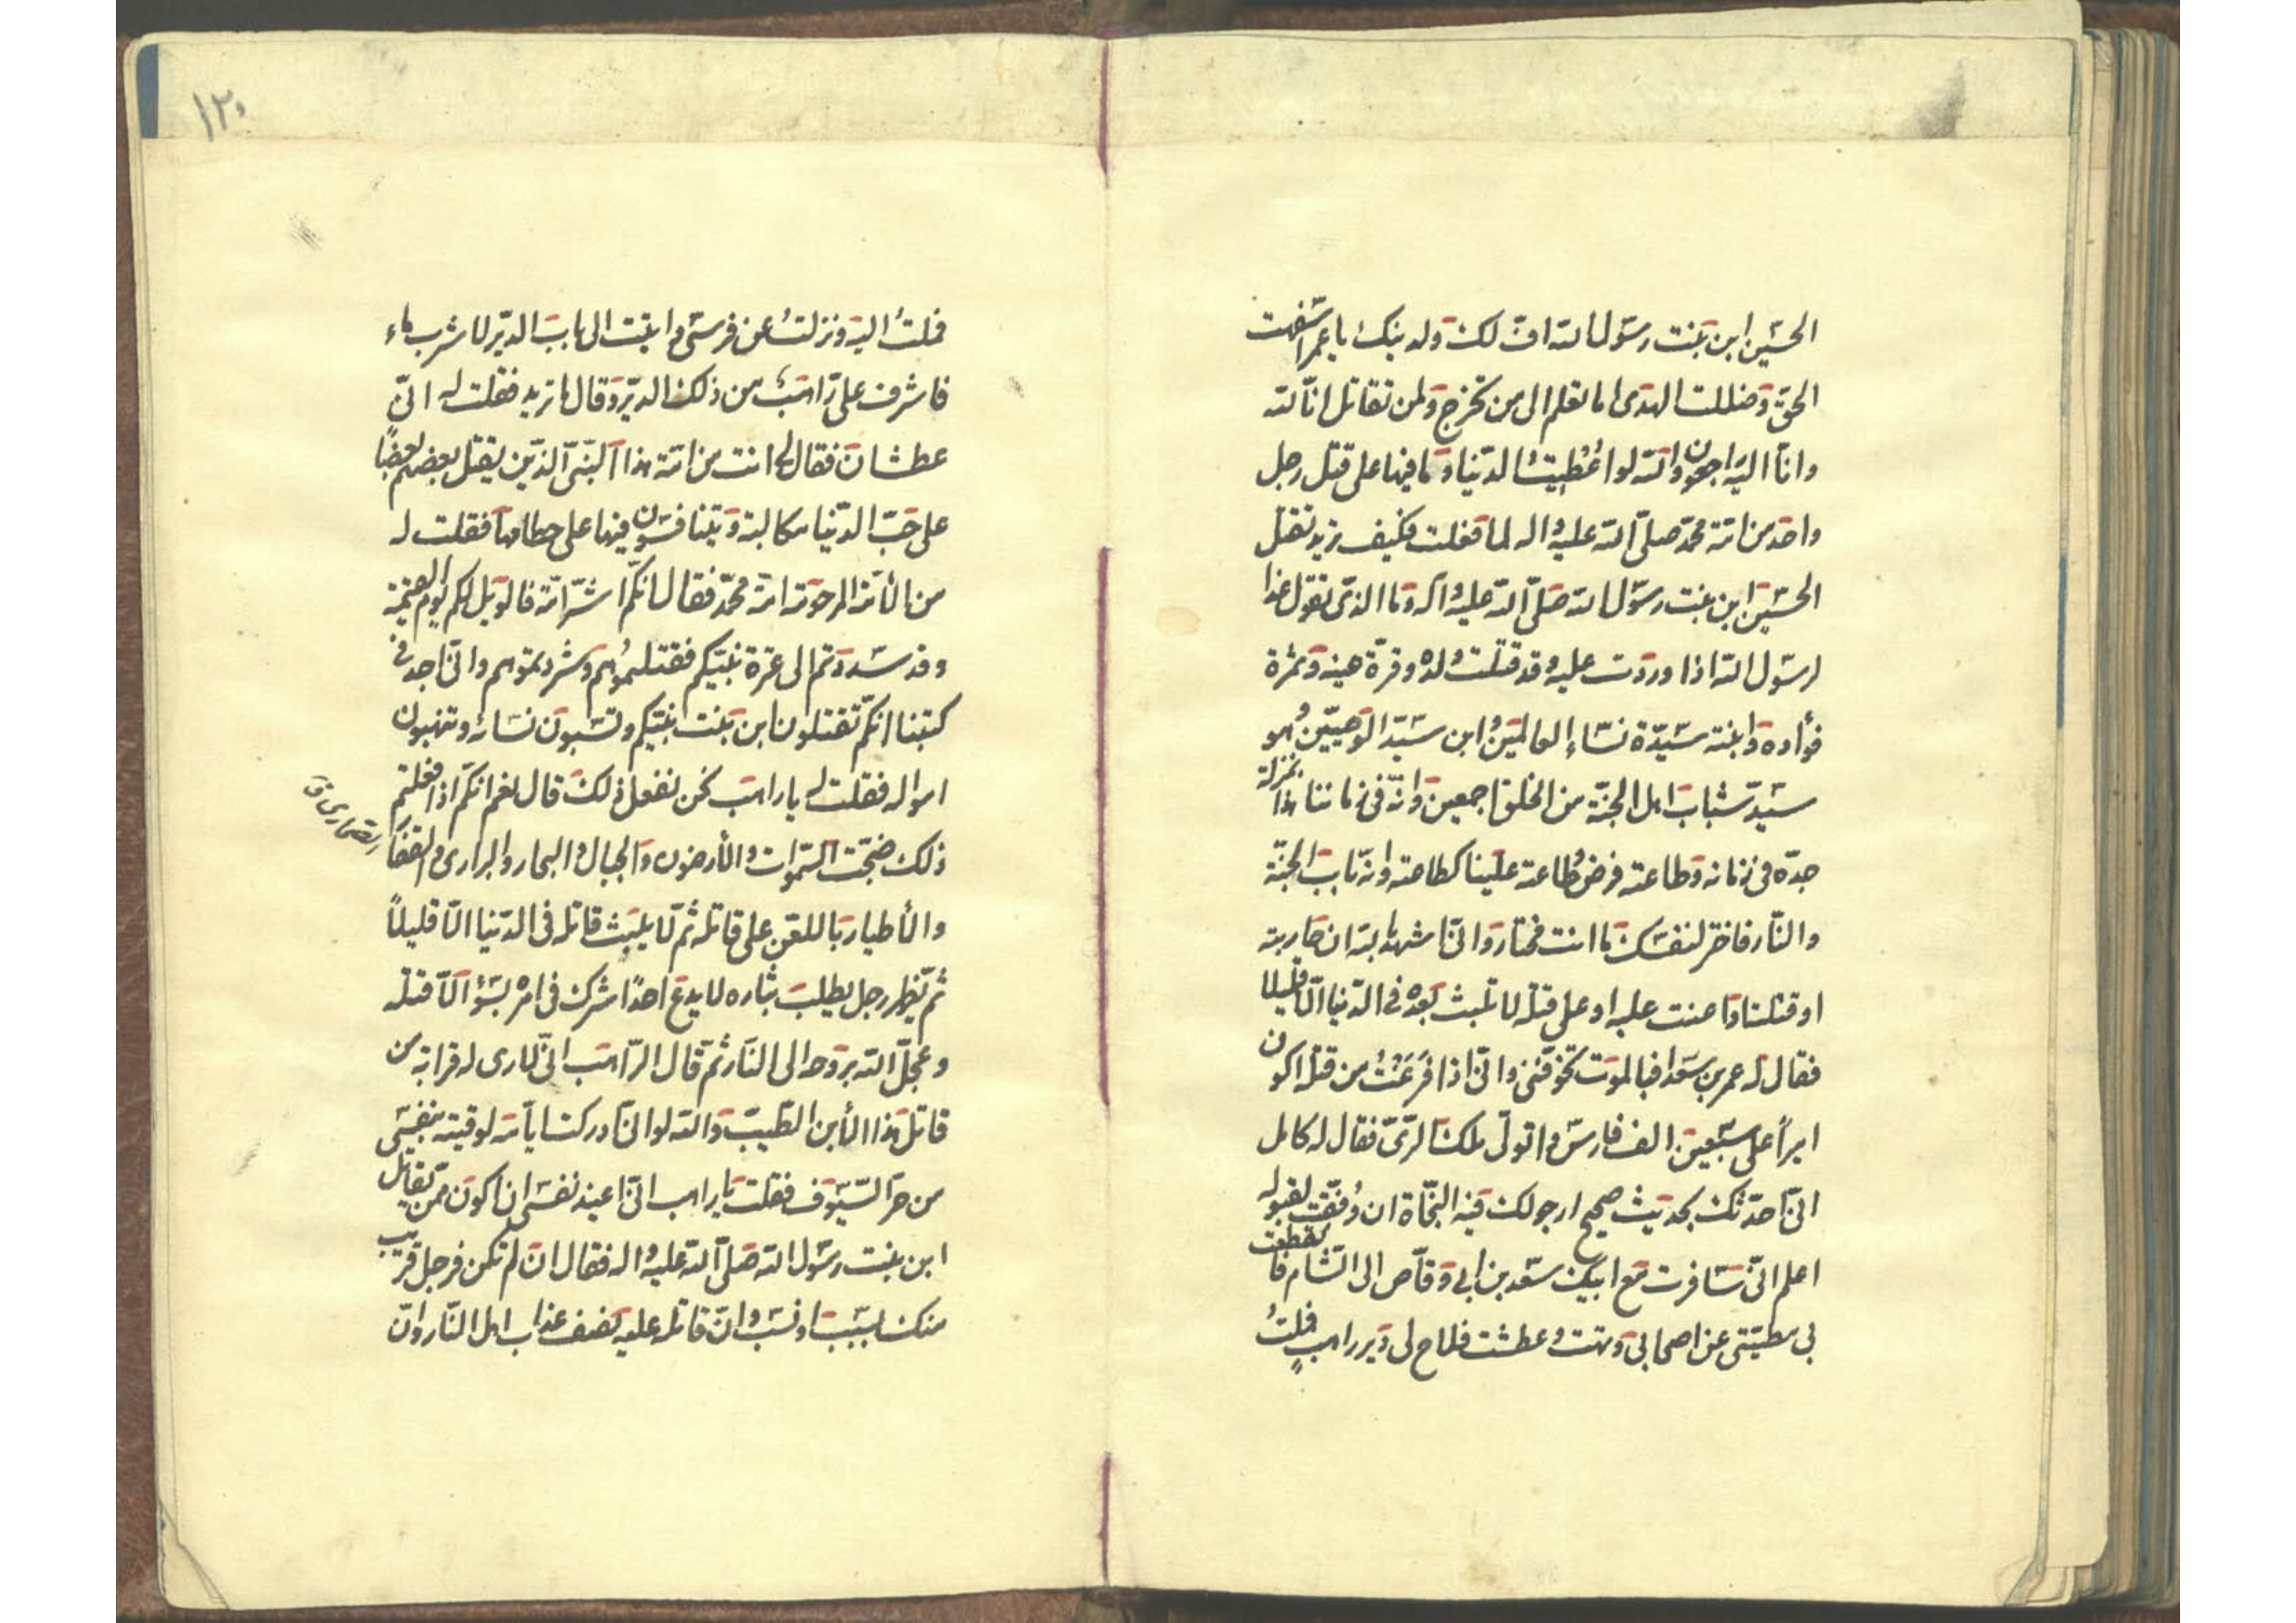 الحسین ابن بنت رسول الله افّ لک ولدینک یا عمر اسفهت
الحقّ وضللت الهدی اما تعلم الی من تخرج ولمن تقاتل انّا لله
وانّا الیه راجعون والله لو اُعطیت الدّنیا وما فیها علی قتل رجل
واحد من امّة محمّد صلّی الله علیه واله لما فعلت فکیف ترید تقتل
الحسین ابن بنت رسول الله صلّی الله علیه واله وما الذی تقول غدا
لرسول الله اذا وردت علیه وقد قتلت ولده وقرّة عینه وثمرة
فؤاده وابنته سیّدة نساء العالمین وابن سیّد الوصیّین وهو
سیّد شباب اهل الجنّة من الخلق اجمعین وانّه فی زماننا هذا بمنزلة
جدّه فی زمانه وطاعته فرض طاعة علینا کطاعته وانّه باب الجنّة
والنّار فاختر لنفسک ما انت مختار وانّی اشهد بالله ان حاربته
او قتلته او اعنت علیه او علی قتله لا تلبث بعده فی الدّنیا الّا قلیلا
فقال له عمر بن سعد افبالموت تخوّفنی وانّی اذا فرغت من قتله اکون
امیراً علی سبعین الف فارس واتولّی ملک الرّیّ فقال له کامل
انّی احدّثک بحدیث صحیح ارجو لک فیه النّجاة ان وُفّقت لقبوله
اعلم انّی سافرت مع ابیک سعد بن ابی وقّاص الی الشّام فانقطعت
بی مطیّتی عن اصحابی وتهت وعطشت فلاح لی دیر راهبٍ فملتُ
فملت الیه ونزلت عن فرسی واتیت الی باب الدّیر لاشرب ماء
فاشرف علیّ راهب من ذلک الدّیر وقال ما ترید فقلت له انّی
عطشان فقال لی انت من امّة هذا النّبیّ الذین یقتل بعضهم بعضًا
علی حبّ الدّنیا مکالبة ویتنافسون فیها علی حطامها فقلت له
من الأمّة المرحومة امّة محمّد فقال انّکم اشرّ امّة فالویل لکم یوم القیمة
وقد شددتم الی عترة نبیّکم فقتلتموهم وشردتموهم وانّی اجد فی
کتبنا انّکم تقتلون ابن بنت نبیّکم وتسبون نساءه وتنهبون
امواله فقلت له یا راهب نحن نفعل ذلک قال نعم انّکم اذا فعلتم
ذلک ضجّت السّموات والأرضون والجبال والبحار والبراری والقفار
والأطیار باللعن علی قاتله ثمّ لا یلبث قاتله فی الدّنیا الّا قلیلاً
ثمّ یظهر رجل یطلب بثاره لا یدع احداً شرک فی امره بسوء الّا قتله
وعجّل الله بروحه الی النّار ثمّ قال الرّاهب انّی لاری له قرابة من
قاتل هذا الأبن الطّیب والله لو انّی ادرکت ایّامه لوقیته بنفسی
من حرّ السّیوف فقلت یا راهب انّی اعیذ نفسی ان اکون ممّن یقاتل
ابن بنت رسول الله صلّی الله علیه واله فقال ان لم تکن فرجل قریب
منک بسبب او نسب وانّ قاتله علیه نصف عذاب اهل النّار وانّ
١٢٠